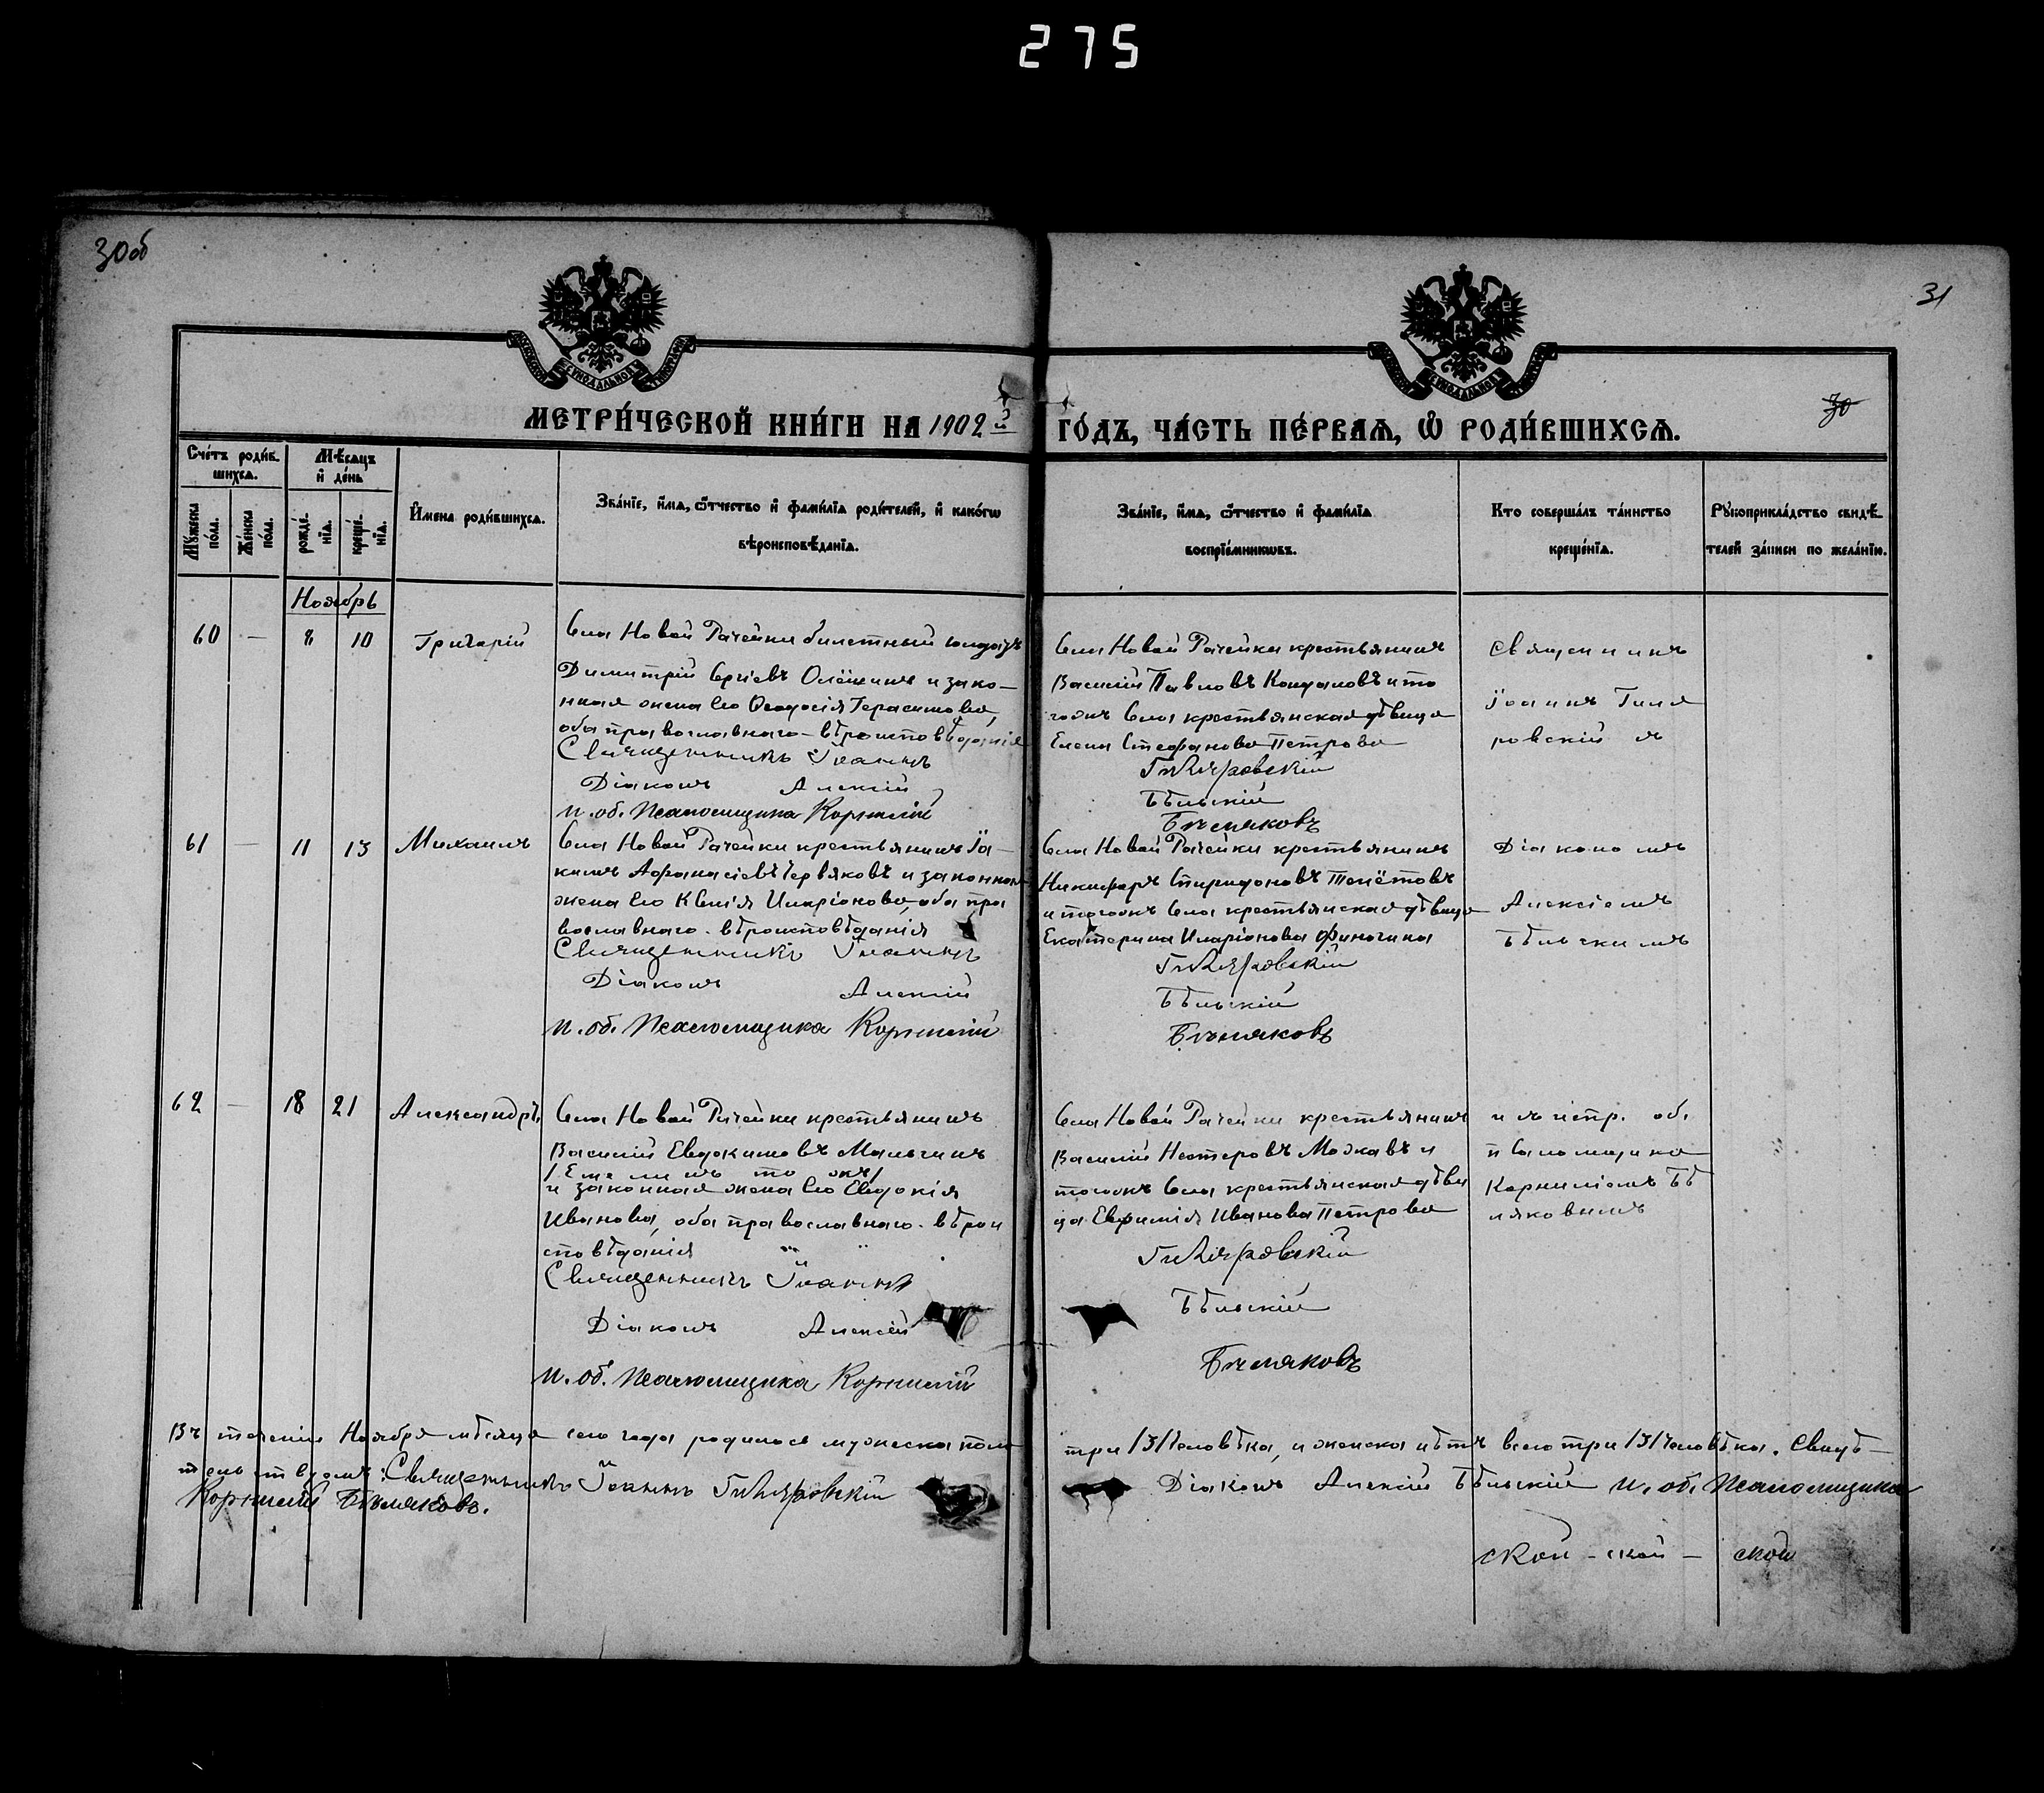 275
30об
31
30
МЕТРИ́ЧЕСКОЙ КНИ́ГИ НА 1902 й
ГО́ДЪ, ЧА́СТЬ ПЕ́РВАѦ, Ѽ РОДИ́ВШИХСѦ.
Сче́тъ роди́в-
шихсѧ.
Мꙋ́жеска по́ла.
Же́нска по́ла.
Мѣ́сѧцъ
и҆ де́нь
рожде́-нїѧ.
креще́-нїѧ.
И҆мена роди́вшихсѧ.
Зва́нїе, и҆́мѧ, ѻ҆́тчество и҆ фами́лїѧ роди́телей, и҆ како́гѡ
вѣроисповѣ́данїѧ.
Зва́нїе, и҆́мѧ, ѻ҆́тчество и҆ фами́лїѧ
воспрїе́мникѡвъ.
Кто соверша́лъ та́инство
креще́нїѧ.
Рꙋкоприкла́дство свидѣ́-
телей за́писи по жела́нїю.
Ноябрь
60 — 8 10 Григорій
Села Новой Рачейки билетный солдатъ
Димитрій Сергіевъ и зако-
нная жена его Ѳеодосія Герасимова,
оба православнаго вѣроисповѣданія
Священникъ Іоаннъ
Діаконъ Алексій
И. об. Псаломщика Корнилій
Села Новой Рачейки крестьянинъ
Василій Павловъ и то
гожъ села крестьянская дѣвица
Елена Стефанова Петрова
Гиляровскій
Бѣльскій
Бѣляковъ
Священникъ
Іоаннъ Гиля
ровскій
61 — 11 13 Михаилъ
Села Новой Рачейки крестьянинъ Іа-
кимъ Аѳанасіевъ Червяковъ и законная
жена его Ксенія Иларіонова, оба пра
вославнаго вѣроисповѣданія
Священникъ Іоаннъ
Діаконъ Алексій
И. об. Псаломщика Корнилій
Села Новой Рачейки крестьянинъ
Никифоръ Спиридоновъ
и тогожъ села крестьянская дѣвица
Екатерина Иларіонова Финогина
Гиляровскій
Бѣльскій
Бѣляковъ
Діакономъ
Алексіемъ
Бѣльскимъ
62 — 18 21 Александръ
Села Новой Рачейки крестьянинъ
Василій Евдокимовъ Мальгинъ
/Емелинъ тожъ/
и законная жена его Евдокія
Иванова, оба православнаго вѣрои
сповѣданія
Священникъ Іоаннъ
Діаконъ Алексій
И. об. Псаломщика Корнилій
Села Новой Рачейки крестьянинъ
Василій Несторовъ и
тогожъ села крестьянская дѣви
ца Евфимія Иванова Петрова
Гиляровскій
Бѣльскій
Бѣляковъ
об.
псаломщика
Корниліемъ Бѣ
ляковымъ
Въ теченіи Ноября мѣсяца сего года родилось мужеска пола
три /3/ человѣка, и женска нѣтъ всего три /3/ человѣка. Свидѣ-
тельствуемъ: Священникъ Іоаннъ Гиляровскій
Діаконъ Алексій Бѣльскій И. об. Псаломщика
Корнилій Бѣляковъ.
ской - ской - ской